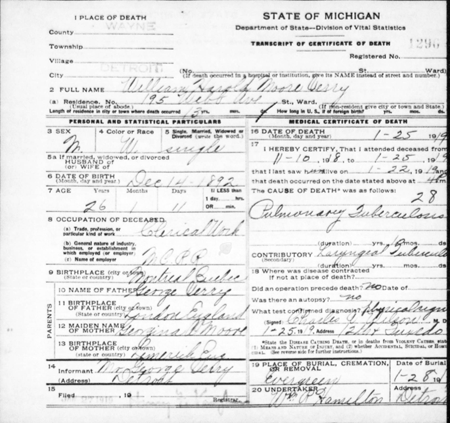 1 PLACE OF DEATH
STATE OF MICHIGAN
County WAYNE
Department of State—Division of Vital Statistics
Township
TRANSCRIPT OF CERTIFICATE OF DEATH
Village
Registered No.
DETROIT
(If death occurred in a hospital or institution, give its NAME instead of street and number.)
2 FULL NAME William Harold Moore Perry
(a) Residence. No. St., Ward.
(Usual place of abode)
(If non-resident give city or town and State)
Length of residence in city or town where death occurred yrs. mos.
PERSONAL AND STATISTICAL PARTICULARS
MEDICAL CERTIFICATE OF DEATH
3 SEX
M
4 Color or Race
W
5 Single, Married, Widowed or Divorced (Write the word)
single
5a If married, widowed, or divorced
HUSBAND of
(or) WIFE of
6 DATE OF BIRTH
(Month, day and year) Dec 14 1892
7 AGE
26 1 11
If LESS than
1 day hrs.
OR min.
8 OCCUPATION OF DECEASED
(a) Trade, profession, or
particular kind of work Clerical Work
(b) General nature of industry,
business, or establishment in
which employed (or employer)
(c) Name of employer M.C.R.R.
9 BIRTHPLACE Montreal Quebec
PARENTS
10 NAME OF FATHER George Perry
11 BIRTHPLACE OF FATHER London England
12 MAIDEN NAME OF MOTHER Georgina Moore
13 BIRTHPLACE OF MOTHER Limerick
14 Informant George Perry
(Address) Detroit
15
Filed , 19
Registrar.
16 DATE OF DEATH
(Month, day and year) 1-25 19
17
I HEREBY CERTIFY, That I attended deceased from
11-10 1918, to 1-25, 19
that I last saw h alive on 1-22 19
and that death occurred on the date stated above at m.
The CAUSE OF DEATH* was as follows:
28
Pulmonary Tuberculosis
(duration) yrs.
CONTRIBUTORY Laryngeal Tuberculosis
(duration) yrs.
18 Where was disease contracted
if not at place of death?
Did an operation precede death? no Date of
Was there an autopsy? no
What test confirmed diagnosis? Physical Signs
(Signed) Charles
1-25 19
*State the DISEASE CAUSING DEATH, or in deaths from VIOLENT CAUSES state
(1) MEANS AND NATURE OF INJURY, and (2) whether ACCIDENTAL, SUICIDAL, or
19 PLACE OF BURIAL, CREMATION, OR REMOVAL
Evergreen
Date of Burial
1-28 19
20 UNDERTAKER
Wm R Hamilton
Address
Detroit